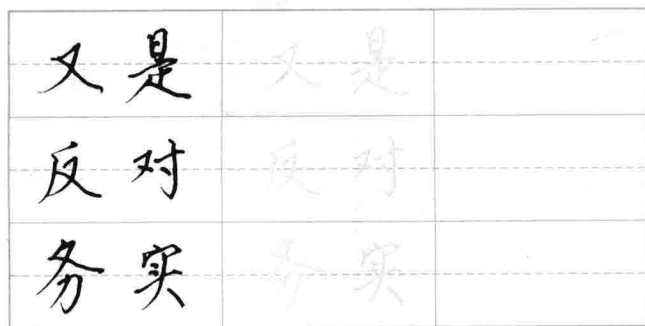 又是 又是
反对 反对
务实 务实